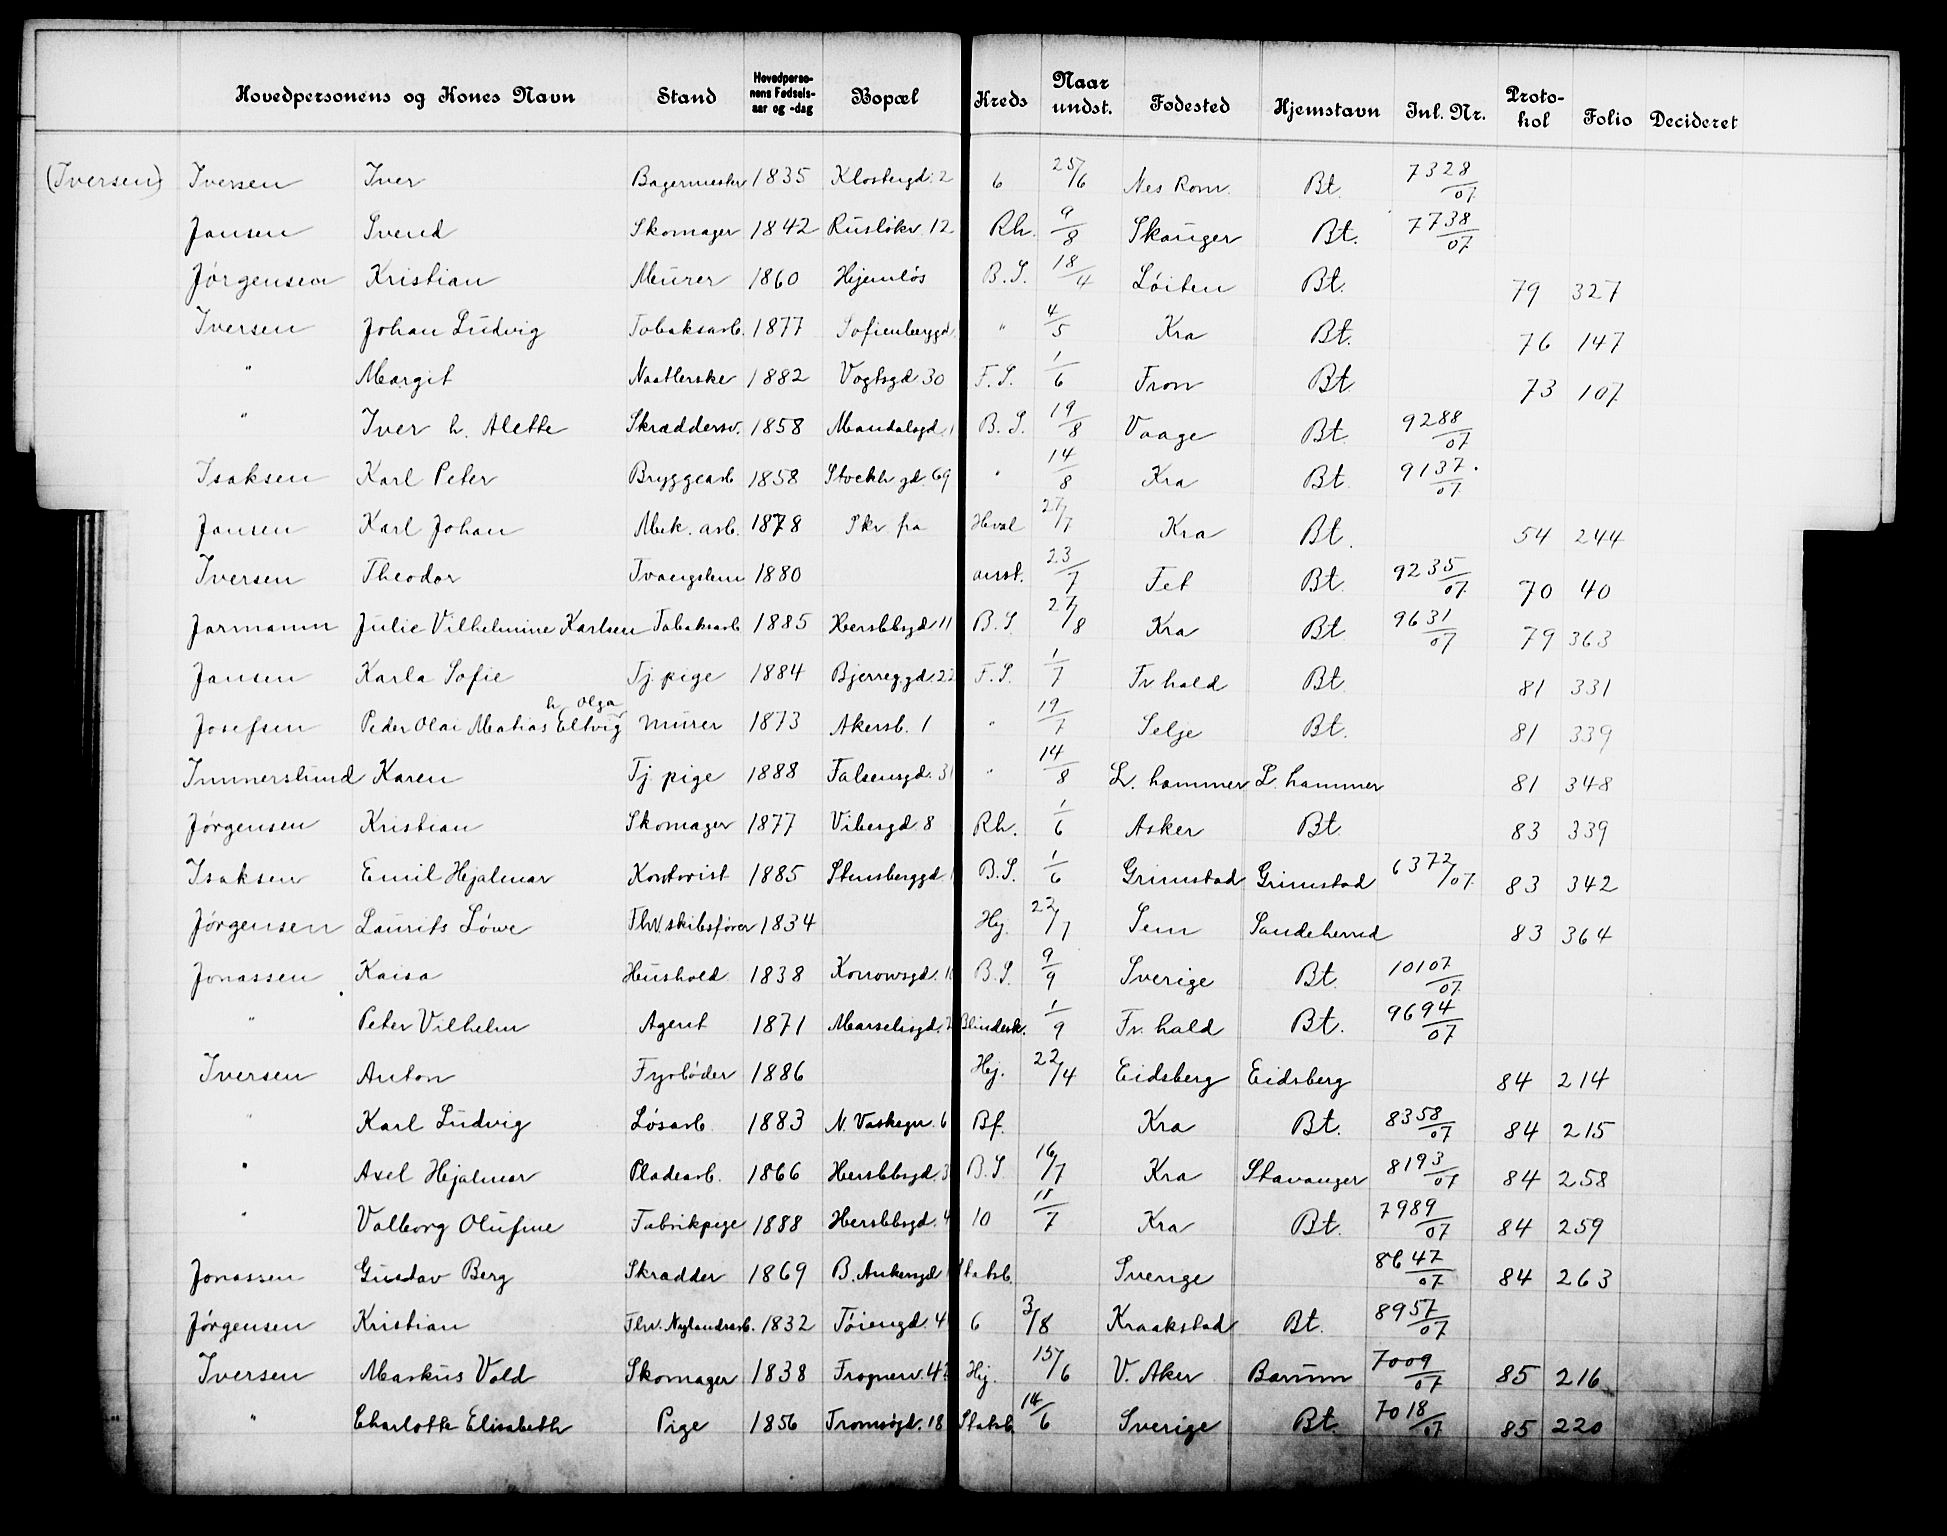 Hovedpersonens og Kones Navn Stand Hovedperso-nens Fødsels-aar og -dag Bopæl Kreds Naar undst. Fødested Hjemstavn Inl. Nr. Proto-kol Folio Decideret
(Iversen) Iversen Iver Bagermester 1835 Klostergd. 2 6 25/6 Nes Rom. Bt. 7328/07
Jansen Svend Skomager 1842 Rusløkv. 12 Rh. 9/8 Skauger Bt. 7738/07
Jørgensen Kristian Murer 1860 Hjemløs B.S. 18/4 Løiten Bt. 79 327
Iversen Johan Ludvig Tobaksarb. 1877 Sofienberggd. " 4/5 Kra Bt. 76 147
" Margit Naatlerske 1882 Vogtsgd. 30 F.S. 1/6 Fron Bt. 73 107
" Iver h. Alette Skræddersv. 1858 Mandalsgd. B.S. 19/8 Vaage Bt. 9288/07
Isaksen Karl Peter Bryggearb 1858 Stockh. gd. 69 " 14/8 Kra Bt. 9137/07
Jansen Karl Johan Mek. arb. 1878 Skr. fra Hval 27/7 Kra Bt. 54 244
Iversen Theodor Tvangslem 1880 anst. 23/7 Fet Bt. 9235/07 70 40
Jarmann Julie Vilhelmine Karlsen Tobaksarb 1885 Herslebsgd 11 B.S. 27/8 Kra Bt. 9631/07 79 363
Jansen Karla Sofie Tj. pige 1884 Bjerreggd. 22 F.S. 1/7 Fr. hald Bt. 81 331
Josefsen Peder Olai Matias h. Olga Eltvig Murer 1873 Akersb. 1 " 19/7 Selje Bt. 81 339
Immerslund Karen Tj. pige 1888 Falsensgd. 31 " 14/8 L. hammer L. hammer 81 348
Jørgensen Kristian Skomager 1877 Vibesgd. 8 Rh. 1/6 Asker Bt. 83 339
Isaksen Emil Hjalmar Kontorist 1885 Stensberggd. B.S. 1/6 Grimstad Grimstad 6372/07 83 342
Jørgensen Laurits Løwe Fhv. skibsfører 1834 Hej. 22/7 Sem Sandeherred 83 364
Jonassen Kaisa Hushold 1838 B.S. 9/9 Sverige Bt. 10107/07
" Peter Vilhelm Agent 1871 Marselisgd. 2 Blindesk. 1/9 Fr. hald Bt. 9694/07
Iversen Anton Fyrbøder 1886 Hej. 22/4 Eidsberg Eidsberg 84 214
" Karl Ludvig Løsarb. 1883 N. Vaskegn. 6 Bf. Kra Bt. 8358/07 84 215
" Axel Hjalmar Pladearb. 1866 Herslebsgd. 3 B.S 16/7 Kra Stavanger 8193/07 84 258
" Valborg Olufine Fabrikpige 1888 Herslebsgd. 4 10 11/7 Kra Bt. 7989/07 84 259
Jonassen Gustav Berg Skrædder 1869 B. Ankersgd Statsb. Sverige 8647/07 84 263
Jørgensen Kristian Fhv. Nylandsarb. 1832 Tøiengd. 4 6 3/8 Kraakstad Bt. 8957/07
Iversen Markus Vold Skomager 1838 Frognerv. 42 Hej. 15/6 V. Aker Bærum 7009/07 85 216
" Charlotte Elisabeth Pige 1856 Tromsøgd. 18 Statsb. 14/6 Sverige Bt. 7018/07 85 220